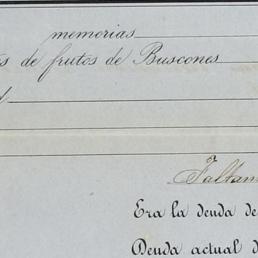 memorias
s de frutos de Buscones
Faltan
Era la deuda de
Deuda actual d